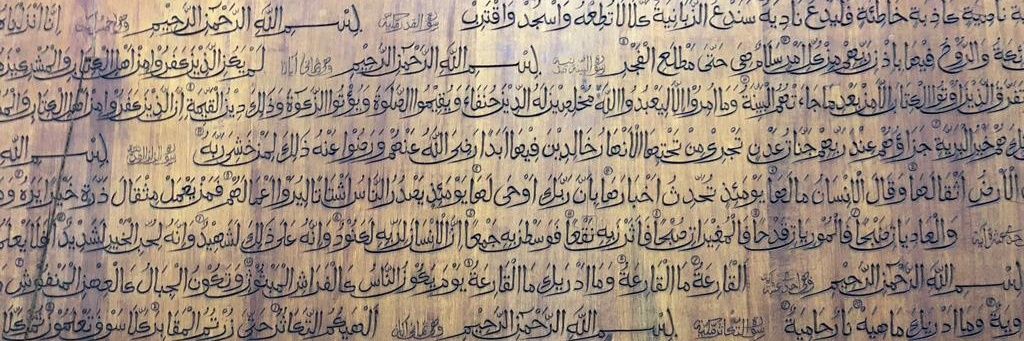 ناصية كاذبة خاطئة فليدع ناديه سندع الزبانية كلا لا تطعه واسجد واقترب بسم الله الرحمن الرحيم انا انزلناه
والروح فيها باذن ربهم من كل امر سلام هي حتى مطلع الفجر بسم الله الرحمن الرحيم لم يكن الذين كفروا من اهل الكتاب والمشركين
الذين اوتوا الكتاب الا من بعد ما جاءتهم البينة وما امروا الا ليعبدوا الله مخلصين له الدين حنفاء ويقيموا الصلوة ويؤتوا الزكوة وذلك دين القيمة ان الذين كفروا من اهل الكتاب
هم خير البرية جزاؤهم عند ربهم جنات عدن تجري من تحتها الأنهار خالدين فيها ابدا رضي الله عنهم ورضوا عنه ذلك لمن خشي ربه بسم الله
الأرض أثقالها وقال الإنسان ما لها يومئذ تحدث اخبارها بان ربك اوحى لها يومئذ يصدر الناس اشتاتا ليروا اعمالهم فمن يعمل مثقال ذرة خيرا يره
والعاديات ضبحا فالموريات قدحا فالمغيرات صبحا فأثرن به نقعا فوسطن به جمعا ان الإنسان لربه لكنود وانه على ذلك لشهيد وانه لحب الخير لشديد افلا يعلم
بسم الله الرحمن الرحيم القارعة ما القارعة وما ادريك ما القارعة يوم يكون الناس كالفراش المبثوث وتكون الجبال كالعهن المنفوش
وما ادريك ما هيه نار حامية بسم الله الرحمن الرحيم الهيكم التكاثر حتى زرتم المقابر كلا سوف تعلمون ثم كلا